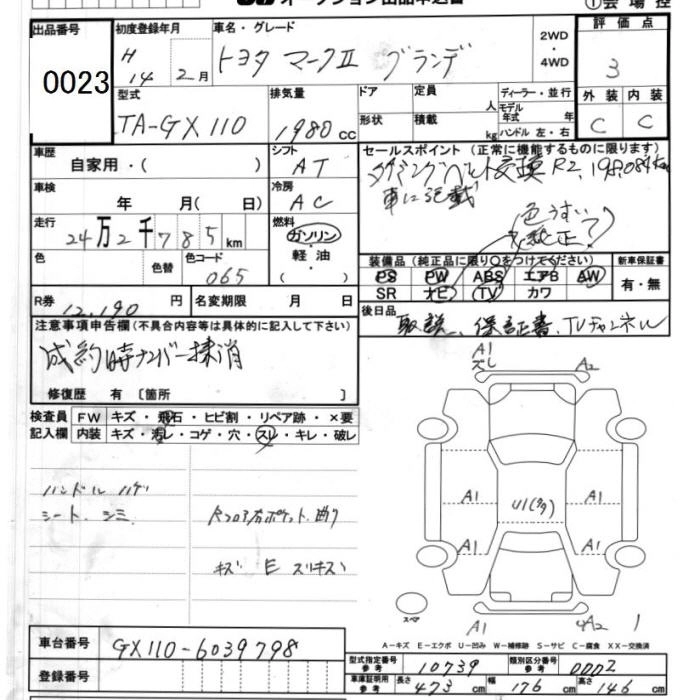 出品番号 初度登録年月 車名・グレード 2WD ・ 4WD 評価点
0023 H 14 2月 トヨタ マークⅡ グランデ 3
型式 排気量 ドア 定員 人 ディーラー・並行 外装 内装
TA-GX110 1980 cc 形状 積載 kg モデル年式 年 ハンドル 左・右 C C
車歴 自家用・( ) シフト AT セールスポイント (正常に機能するものに限ります)
タイミングベルト交換 R2, 198,084km
車検 年 月( 日) 冷房 AC 車に記載
走行 24万2千785km 燃料 ガソリン・軽油・( ) (色うすい?)
色 色替 色コード 065 装備品 (純正品に限り○をつけてください) 新車保証書
PS PW ABS エアB AW 有・無
SR ナビ TV カワ
R券 12,190 円 名変期限 月 日 後日品
注意事項申告欄(不具合内容等は具体的に記入して下さい) 取説、保証書、TVチャンネル
成約時ナンバー抹消
修復歴 有 〔箇所 〕
検査員 FW キズ・飛石・ヒビ割・リペア跡・×要
記入欄 内装 キズ・汚レ・コゲ・穴・スレ・キレ・破レ
A1 ズレ A2
ハンドル ハゲ
シート シミ
A1 A1 U1(タタ) A1 A1
キズ E スリキズ
スペア
A1 A2 1
A-キズ E-エクボ U-凹み W-補修跡 S-サビ C-腐食 XX-交換済
車台番号 GX110-6039798
登録番号
型式指定番号 参考 10739 類別区分番号 参考 0002
車庫証明用 参考 長さ 473 cm 幅 176 cm 高さ 146 cm